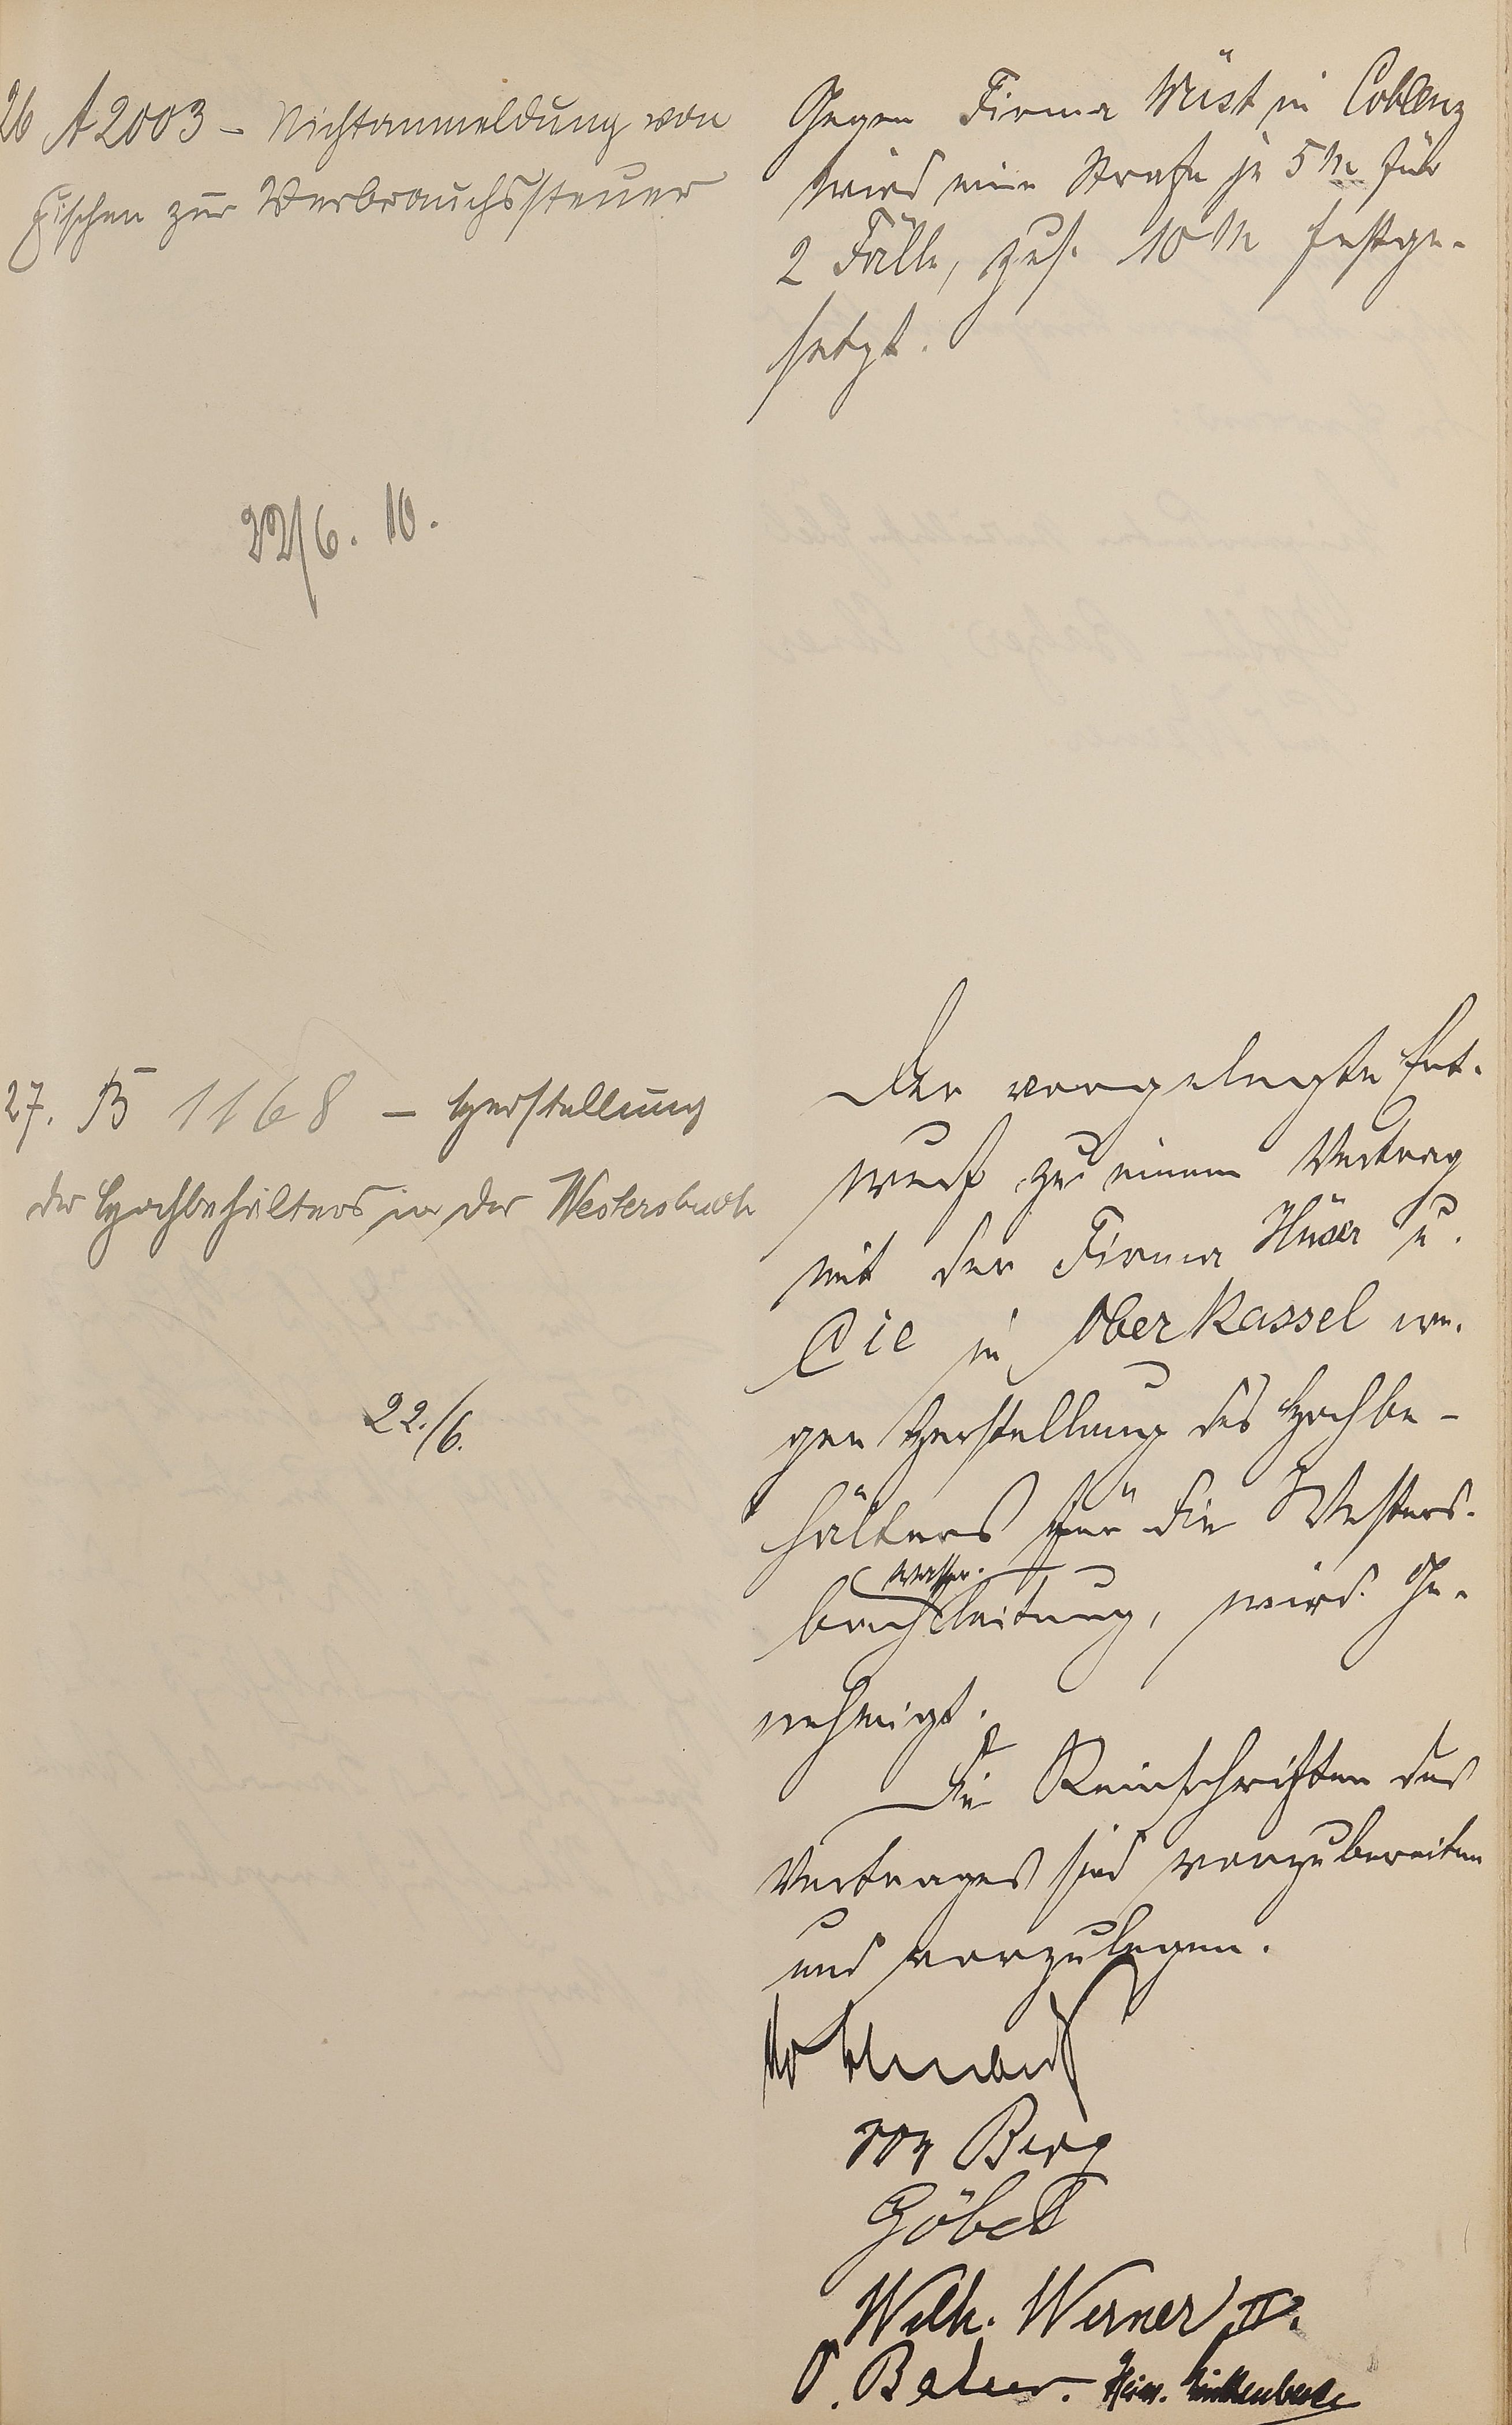 26 A 2003 - Nichtanmeldung von
Fischen zur Verbrauchssteuer
Gegen Firma Wüst in Coblenz
wird eine Strafe je 5 M für
2 Fälle, zus. 10 M festge-
setzt.
22/6. 10.
27. B 1168 - Herstellung
des Hochbehälters in der Westersbach
22./6.
Der vorgelegte Ent-
wurf zu einem Vertrag
mit der Firma Hüser u.
Cie in Oberkassel we-
gen Herstellung des Hochbe-
hälters für die Westers-
bach wasser-leitung, wird ge-
nehmigt.
Die Reinschriften des
Vertrages sind vorzubereiten
und vorzulegen.
von Berg
Göbel
Wilh. Werner II.
O.
Heinr.